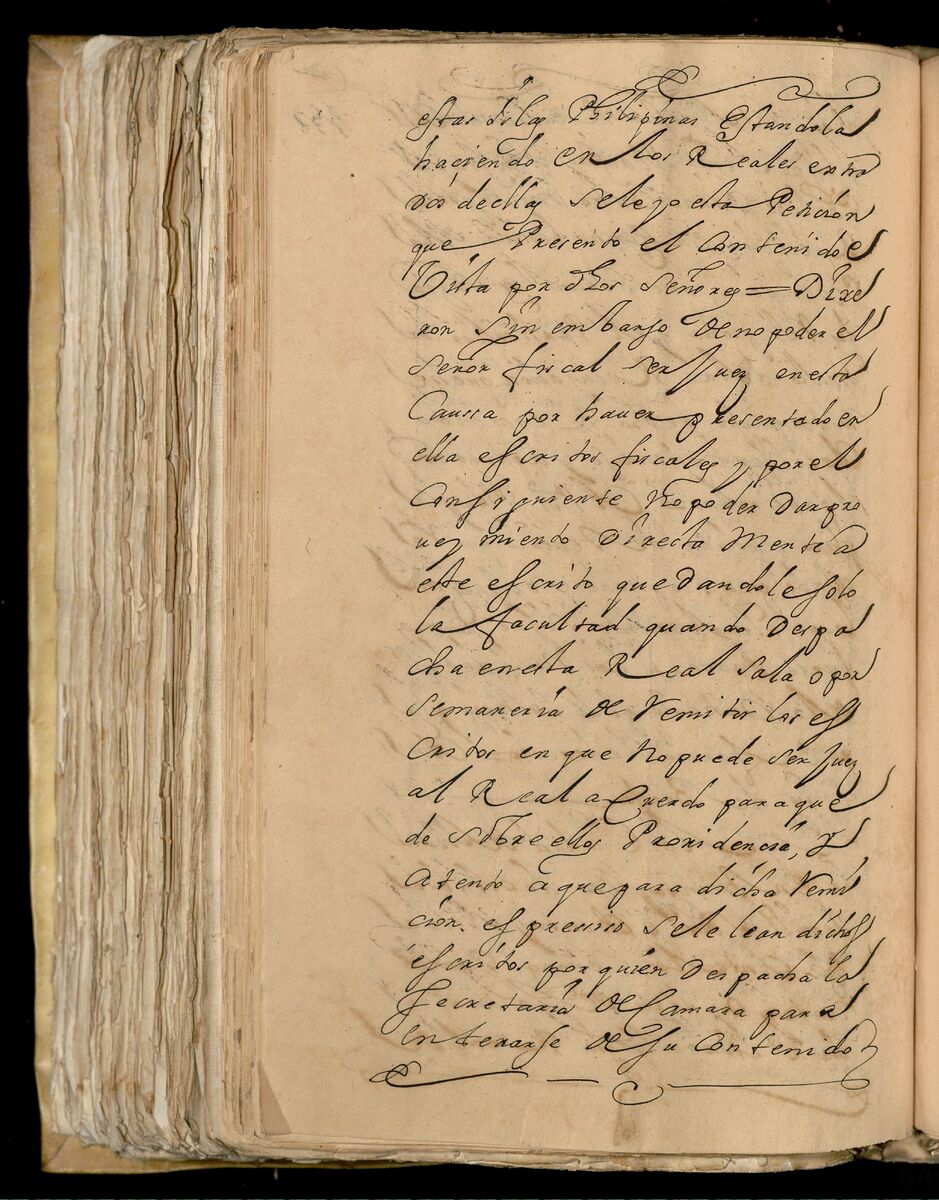 estas Yslas Philipinas Estandola
haciendo en los Reales extra
dos dellas se leyo esta Peticion
que Presento el Contenido el
Vista por dhos Señores = Dixe
ron sin embargo de no poder el
Señor fiscal ser Juez en esta
Caussa por hauer presentado en
ella escritos fiscales y por el
Consiguiente no poder Dar pro
ueymiento Directa Mente a
este escrito quedandole solo
la facultad quando Despa
cha en esta Real Sala o por
semaneria de Remitir los es
Critos en que no puede ser Juez
al Real aCuerdo para que
de sobre ellos Providencia, y
Atento a que para dicha Remi
cion es presiso se le lean dichos
escritos por quien Despacha la
Secretaria de Camara para
enterarse de su Contenido